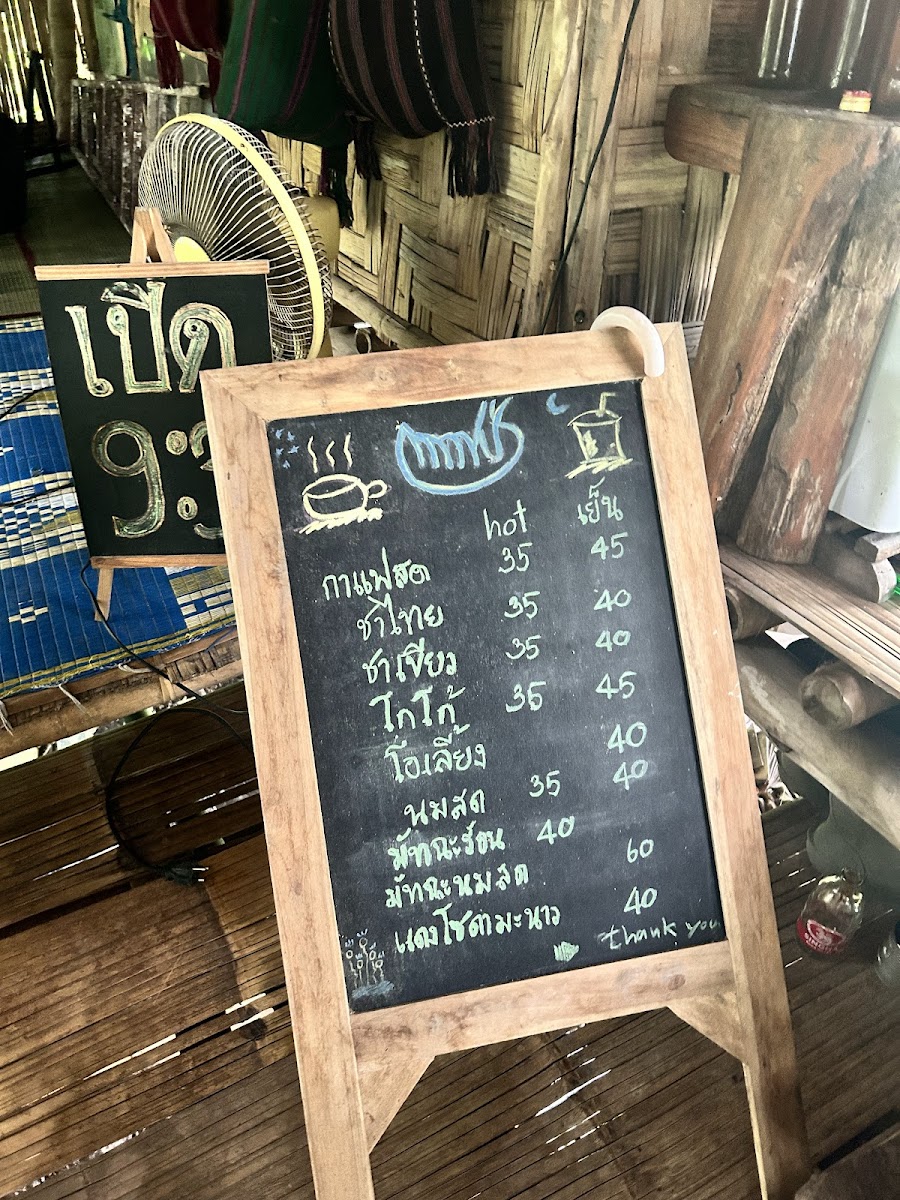 เปิด
9:3
กาแฟ
hot เย็น
กาแฟสด 35 45
ชาไทย 35 40
ชาเขียว 35 40
โกโก้ 35 45
โอเลี้ยง 40
นมสด 35 40
มัทฉะร้อน 40
มัทฉะนมสด 60
แดงโซดามะนาว 40
thank you